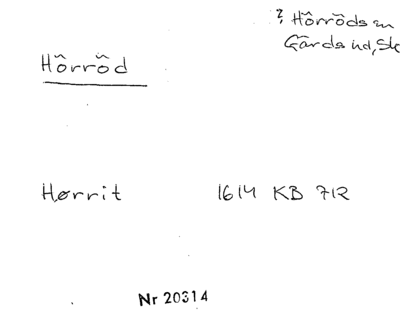 ? Hörröds sn
Gärds hd, Sk
Hörröd
Hørrit 1614 KB 712
Nr 20314